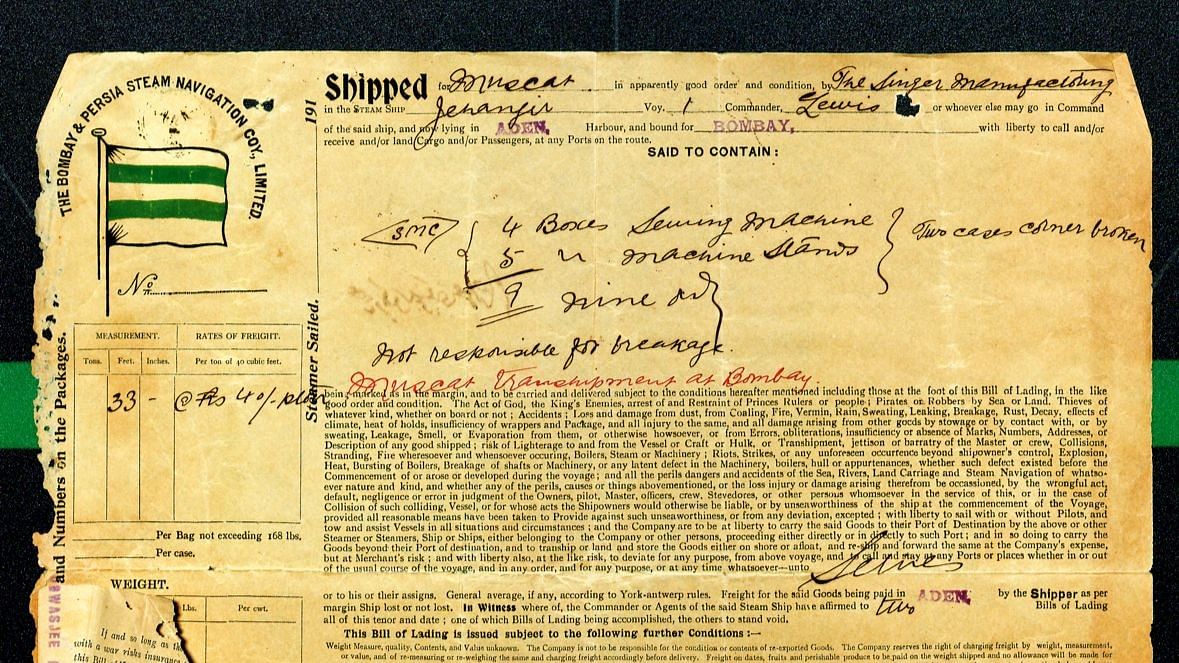 THE BOMBAY & PERSIA STEAM NAVIGATION COY, LIMITED.
No
Shipped for Muscat in apparently good order and condition, by The Singer Manufacturing
in the STEAM SHIP Jehangir Voy. 1 Commander, Lewis or whoever else may go in Command
of the said ship, and now lying in ADEN, Harbour, and bound for BOMBAY, with liberty to call and/or
receive and/or land Cargo and/or Passengers, at any Ports on the route.
SAID TO CONTAIN:
SMC
4 Boxes Sewing Machine
5 " Machine Stands
Two cases corner broken
9 nine
Not responsible for breakage.
Muscat Transhipment at Bombay.
191
Steamer Sailed.
and Numbers on the Packages.
MEASUREMENT. RATES OF FREIGHT.
Tons. Feet. Inches. Per ton of 40 cubic feet.
33 - @ Rs 40/-
Per Bag not exceeding 168 lbs.
Per case.
WEIGHT.
Lbs. Per cwt.
If and so long as the
with a war risks insurance
this Bill of
OWASJEE
being marked as in the margin, and to be carried and delivered subject to the conditions hereafter mentioned including those at the foot of this Bill of Lading, in the like
good order and condition. The Act of God, the King's Enemies, arrest and of Restraint of Princes Rulers or people; Pirates or Robbers by Sea or Land, Thieves of
whatever kind, whether on board or not; Accidents; Loss and damage from dust, from Coaling, Fire, Vermin, Rain, Sweating, Leaking, Breakage, Rust, Decay, effects of
climate, heat of holds, insufficiency of wrappers and Package, and all injury to the same, and all damage arising from other goods by stowage or by contact with, or by
sweating, Leakage, Smell, or Evaporation from them, or otherwise howsoever, or from Errors, obliterations, insufficiency or absence of Marks, Numbers, Addresses, or
Description of any good shipped; risk of Lighterage to and from the Vessel or Craft or Hulk, or Transhipment, jettison or barratry of the Master or crew, Collisions,
Stranding, Fire wheresoever and whensoever occuring, Boilers, Steam or Machinery; Riots, Strikes, or any unforeseen occurrence beyond shipowner's control, Explosion,
Heat, Bursting of Boilers, Breakage of shafts or Machinery, or any latent defect in the Machinery, boilers, hull or appurtenances, whether such defect existed before the
Commencement of or arose or developed during the voyage; and all the perils dangers and accidents of the Sea, Rivers, Land Carriage and Steam Navigation of whatso-
ever nature and kind, and whether any of the perils, causes or things abovementioned, or the loss injury or damage arising therefrom be occassioned, by the wrongful act,
default, negligence or error in judgment of the Owners, pilot, Master, officers, crew, Stevedores, or other persons whomsoever in the service of this, or in the case of
Collision of such colliding, Vessel, or for whose acts the Shipowners would otherwise be liable, or by unseaworthiness of the ship at the commencement of the Voyage,
provided all reasonable means have been taken to Provide against such unseaworthiness, or from any deviation, excepted; with liberty to sail with or without Pilots, and
tow and assist Vessels in all situations and circumstances; and the Company are to be at liberty to carry the said Goods to their Port of Destination by the above or other
Steamer or Steamers, Ship or Ships, either belonging to the Company or other persons, proceeding either directly or in directly to such Port; and in so doing to carry the
Goods beyond their Port of destination, and to tranship or land and store the Goods either on shore or afloat, and re-ship and forward the same at the Company's expense,
but at Merchant's risk; and with liberty also, at the like risk, to deviate for any purpose, from above voyage, and to call and stay at any Ports or places whether in or out
of the usual course of the voyage, and in any order, and for any purpose, or at any time whatsoever—unto
or to his or their assigns. General average, if any, according to York-antwerp rules. Freight for the said Goods being paid in ADEN, by the Shipper as per
margin Ship lost or not lost. In Witness where of, the Commander or Agents of the said Steam Ship have affirmed to two Bills of Lading
all of this tenor and date; one of which Bills of Lading being accomplished, the others to stand void.
This Bill of Lading is issued subject to the following further Conditions:—
Weight Measure, quality, Contents, and Value unknown. The Company is not to be responsible for the condition or contents of re-exported Goods. The Company reserves the right of charging freight by weight, measurement,
or value, and of re-measuring or re-weighing the same and charging freight accordingly before delivery. Freight on dates, fruits and perishable produce to be paid on the weight shipped and no allowance will be made for